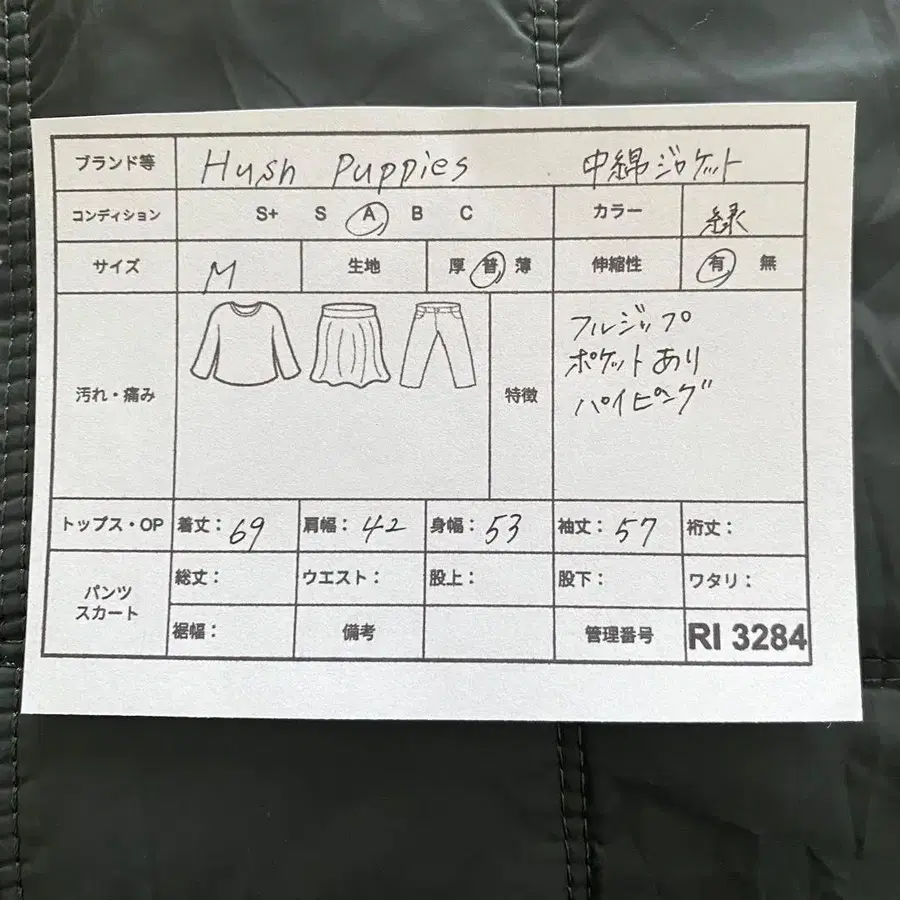 ブランド等 Hush Puppies 中綿ジャケット
コンディション S+ S A B C カラー 緑
サイズ M 生地 厚 普 薄 伸縮性 有 無
汚れ・痛み 特徴 フルジップ
ポケットあり
パイピング
トップス・OP 着丈：69 肩幅：42 身幅：53 袖丈：57 裄丈：
パンツ スカート 総丈： ウエスト： 股上： 股下： ワタリ：
裾幅： 備考 管理番号 RI 3284